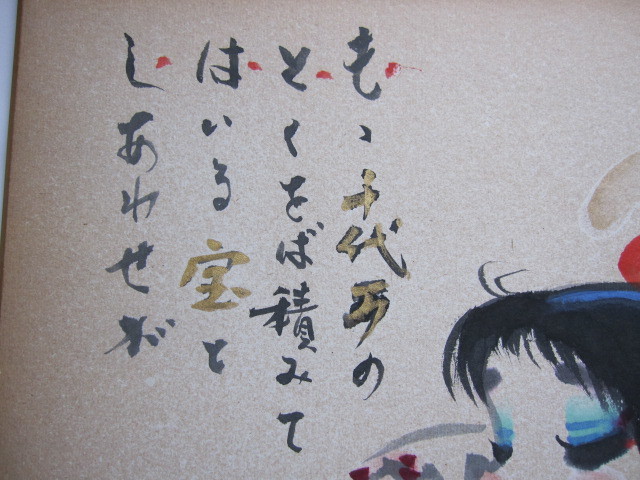 もゝ千代万の
とくをば積みて
はいる宝と
しあわせが